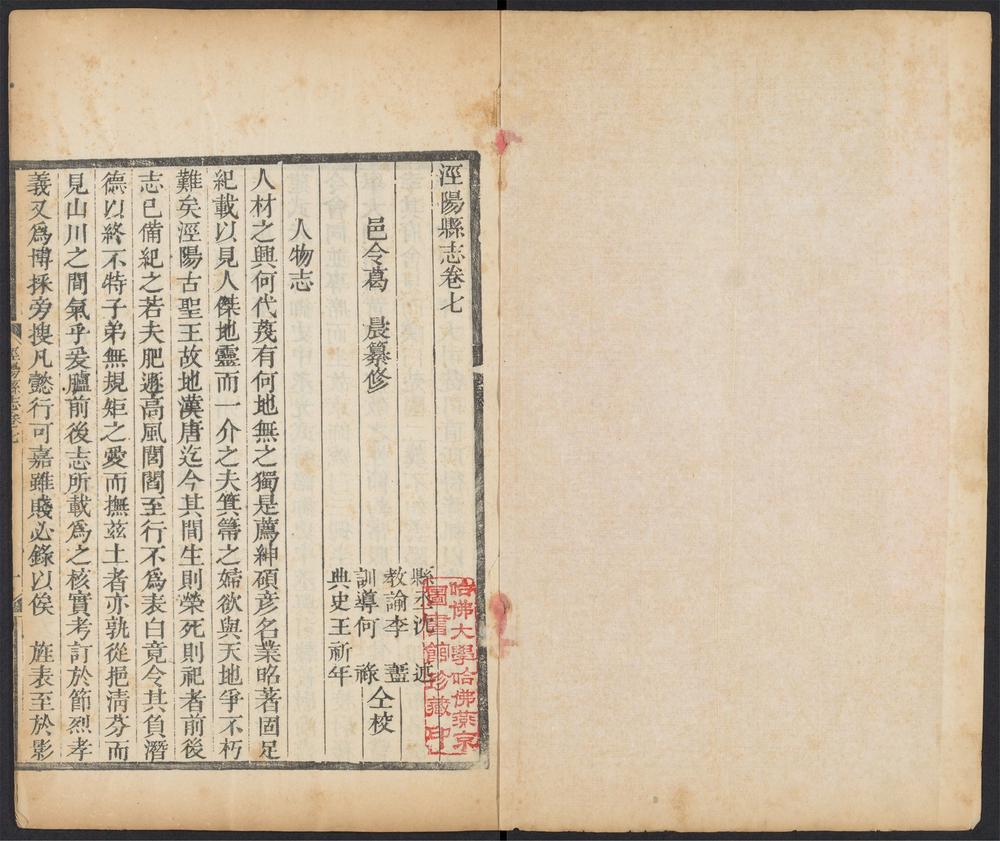 涇陽縣志卷七
邑令葛　晨纂修
縣丞沈　
教諭李　
訓導何　祿
典史王祈年
仝校
人物志
人材之興何代蔑有何地無之獨是薦紳碩彥名業昭著固足
紀載以見人傑地靈而一介之夫箕箒之婦欲與天地爭不朽
難矣涇陽古聖王故地漢唐迄今其間生則榮死則祀者前後
志已備紀之若夫肥遯高風閭閻至行不爲表白竟令其負濳
德以終不特子弟無規矩之愛而撫茲土者亦孰從挹淸芬而
見山川之間氣乎爰臚前後志所載爲之核實考訂於節烈孝
義又爲博採旁搜凡懿行可嘉雖賤必錄以俟　旌表至於影
涇陽縣志卷七
一
哈佛大學哈佛燕京
圖書館珍藏印